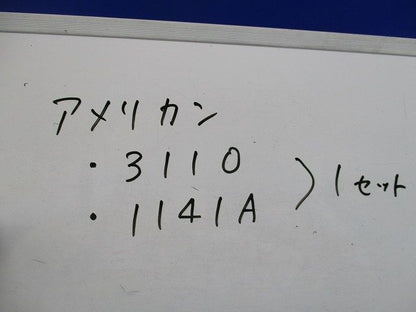 アメリカン
・3110
・1141A
）1セット